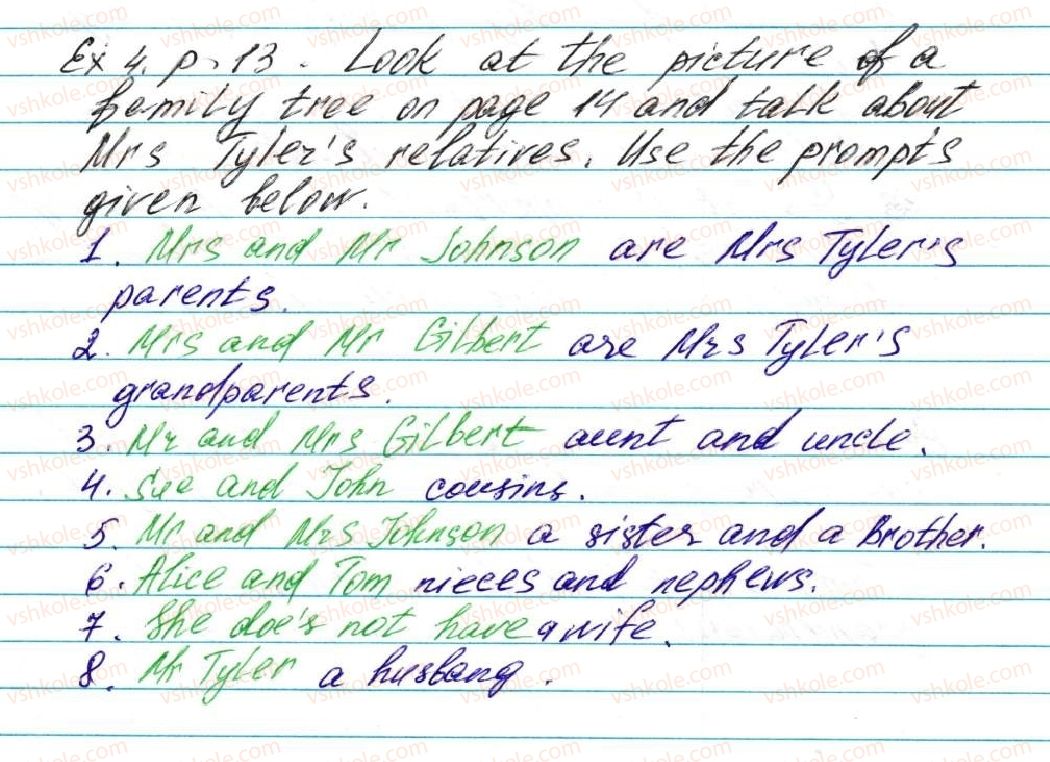 Ex 4. p. 13. Look at the picture of a
family tree on page 14 and talk about
Mrs Tyler's relatives. Use the prompt's
given below.
1. Mrs and Mr Johnson are Mrs Tyler's
parents.
2. Mrs and Mr Gilbert are Mrs Tyler's
grandparents.
3. Mr and Mrs Gilbert aunt and uncle.
4. Sue and John cousins.
5. Mr and Mrs Johnson a sister and a Brother.
6. Alice and Tom nieces and nephews.
7. She doe's not have a wife.
8. Mr Tyler a husbang.
vshkole.com